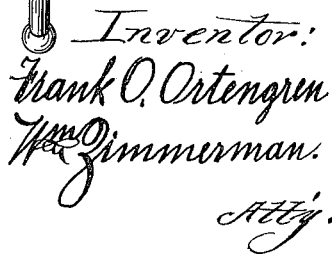 Inventor:
Frank O. Ortengren
Wm Zimmerman.
Att'y.